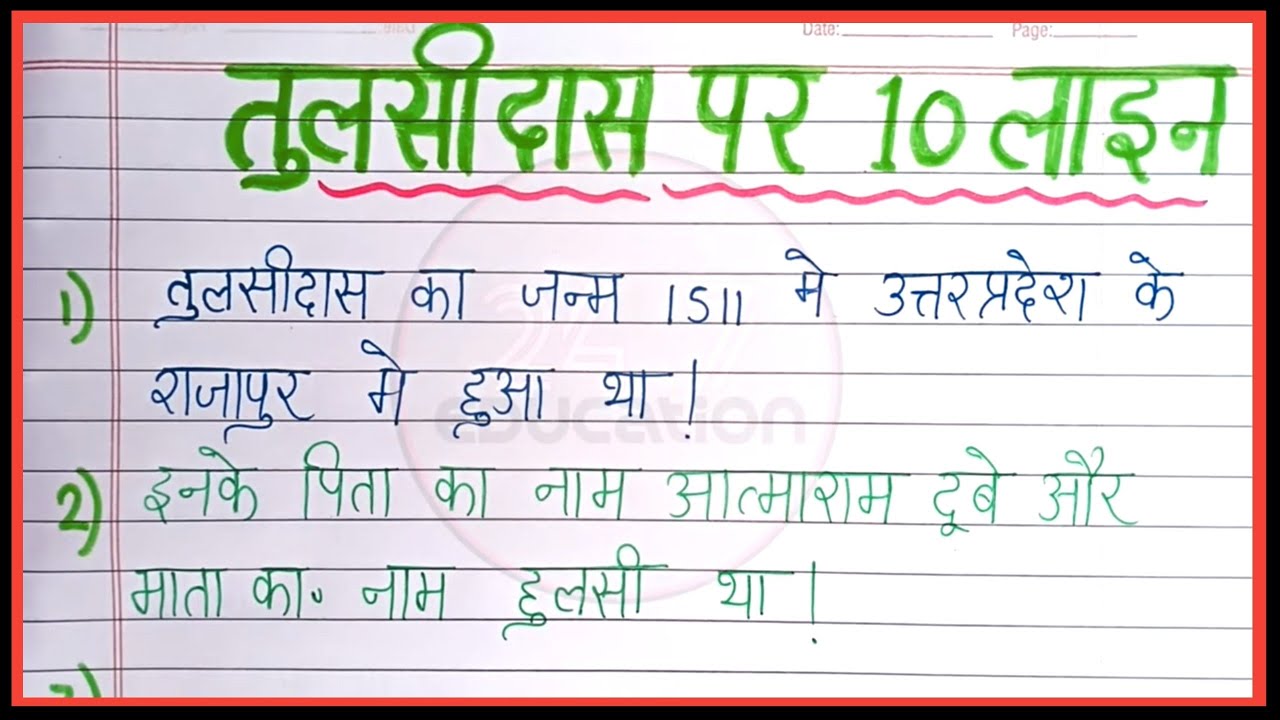 Date: Page:
तुलसीदास पर 10 लाइन
1) तुलसीदास का जन्म 1511 मे उत्तरप्रदेश के
राजापुर मे हुआ था।
education
2) इनके पिता का नाम आत्माराम दूबे और
माता का. नाम हुलसी था।